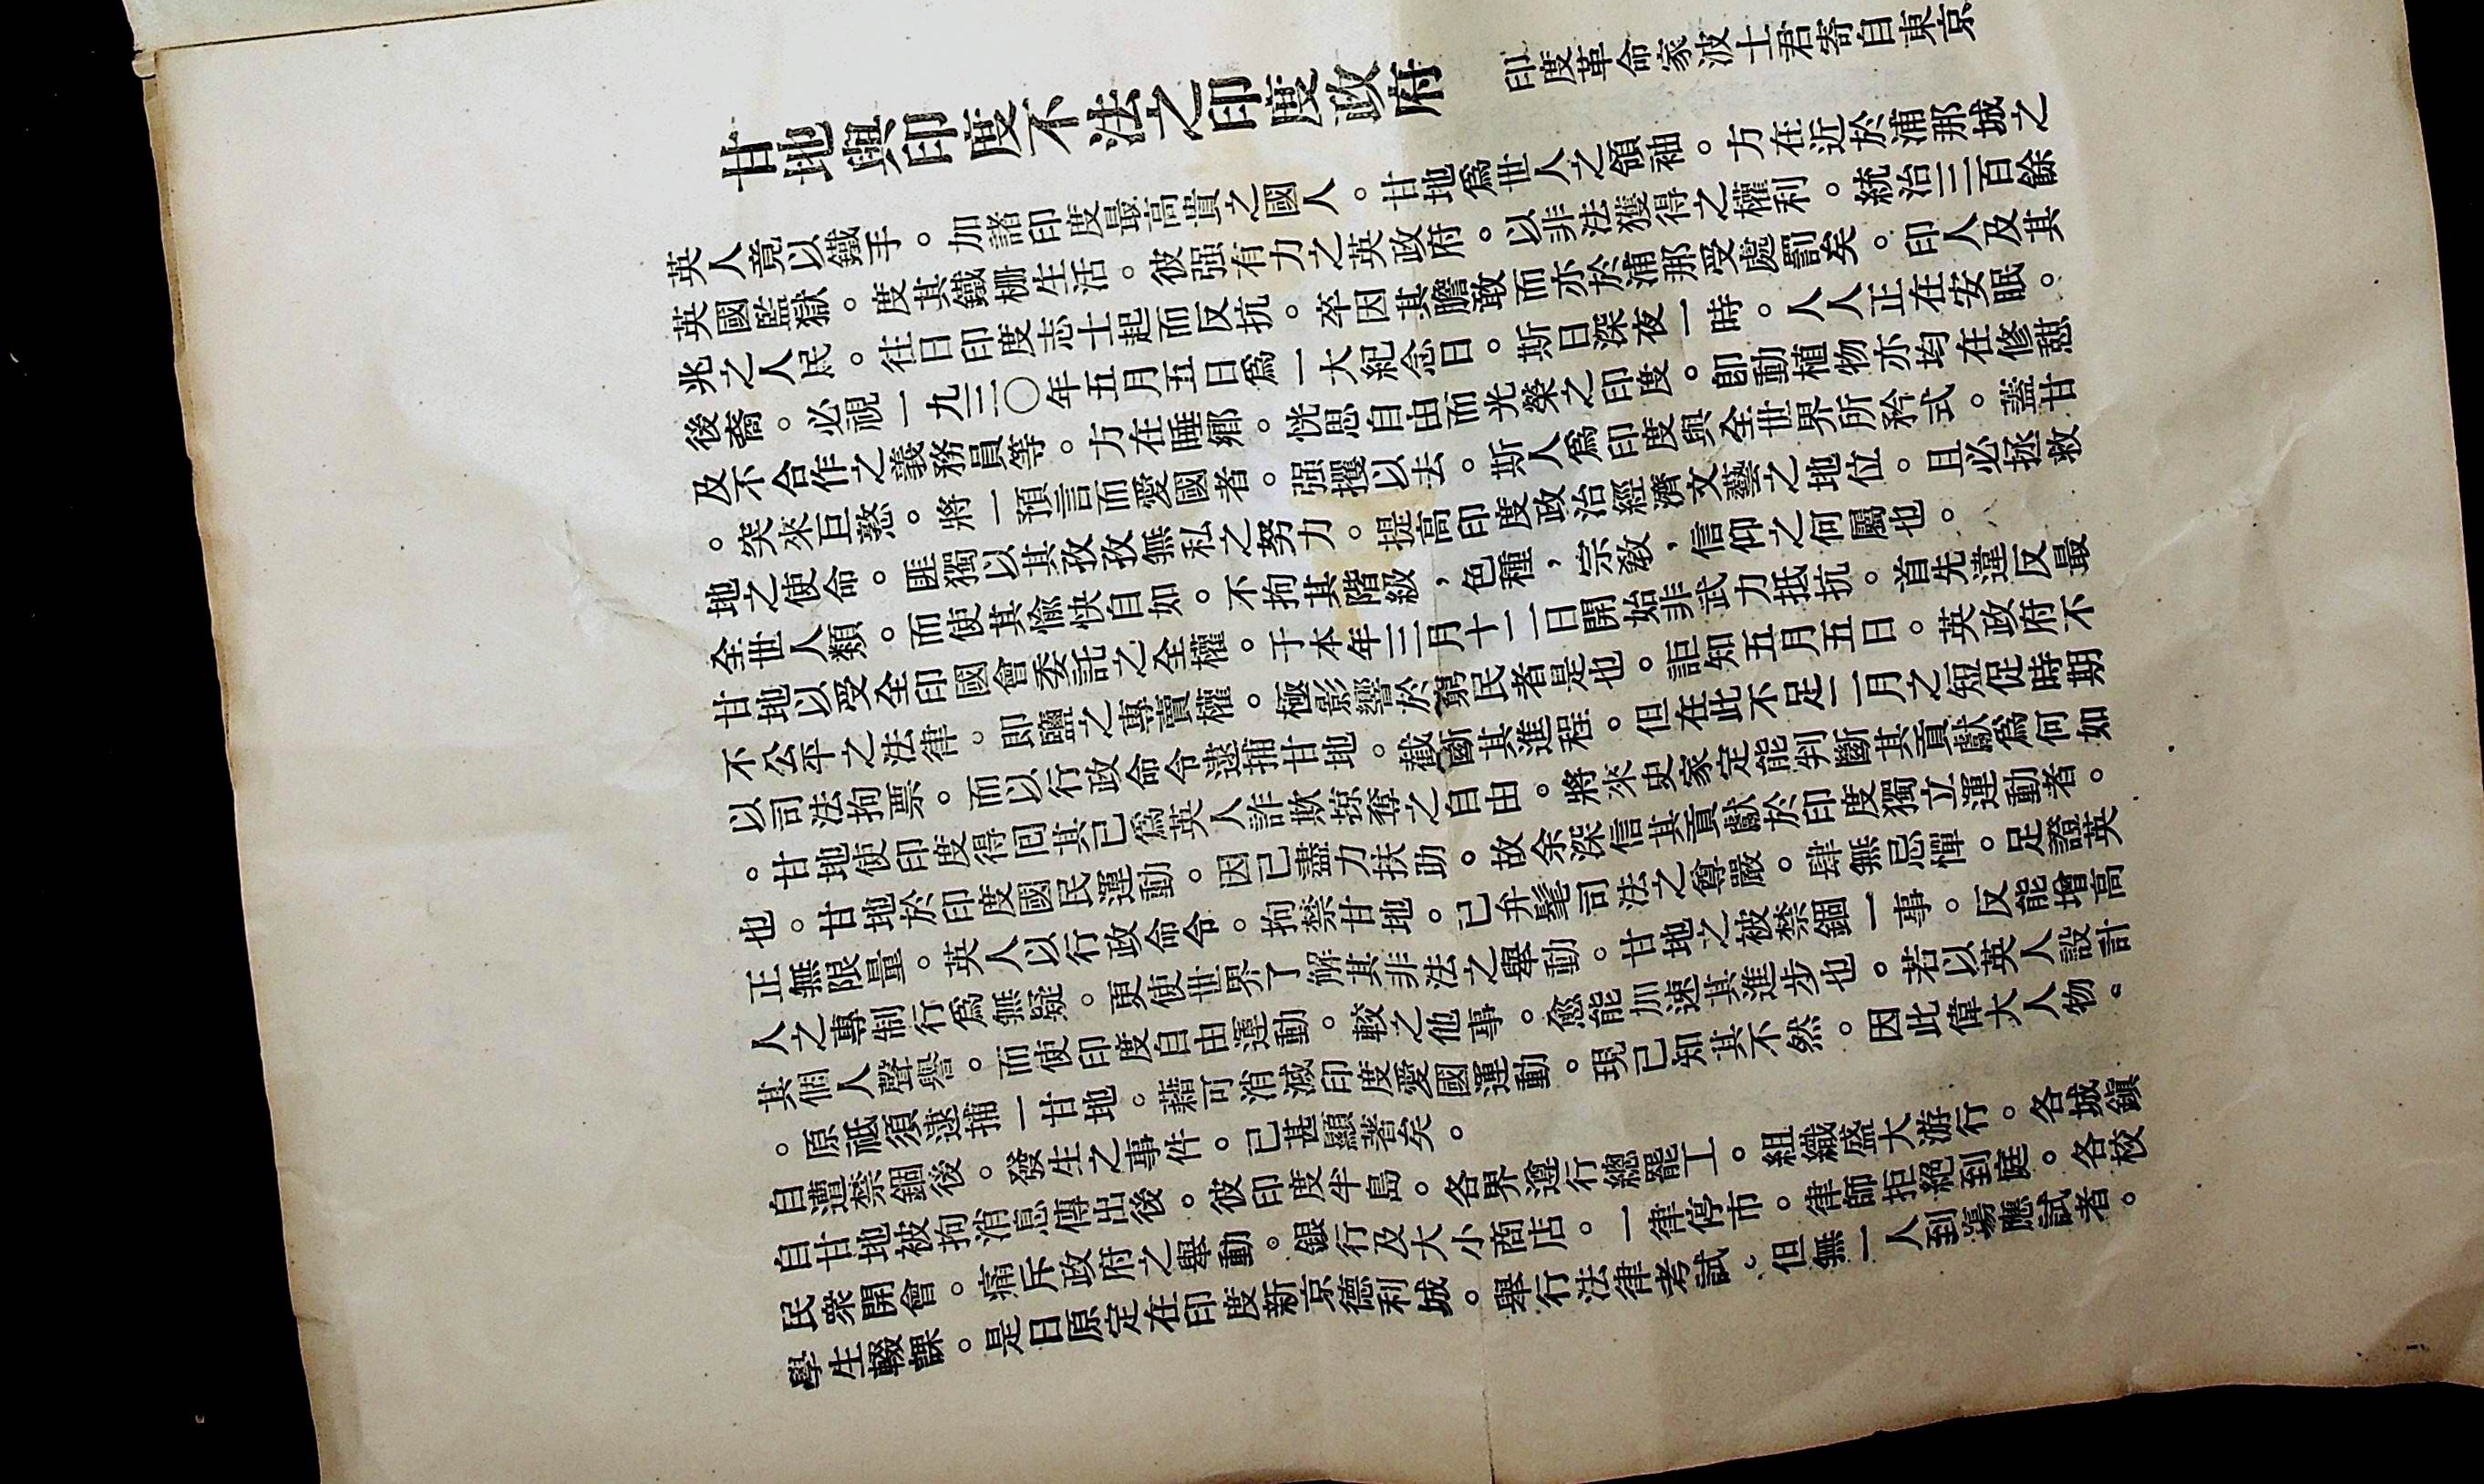 甘地與印度不法之印度政府
印度革命家波士君寄自東京
英人竟以鐵手。加諸印度最高貴之國人。甘地爲世人之領袖。方在近於浦那城之
英國監獄。度其鐵柵生活。彼强有力之英政府。以非法獲得之權利。統治三百餘
兆之人民。往日印度志士起而反抗。卒因其膽敢而亦於浦那受處罰矣。印人及其
後裔。必視一九三〇年五月五日爲一大紀念日。斯日深夜一時。人人正在安眠。
及不合作之義務員等。方在睡鄉。恍思自由而光榮之印度。即動植物亦均在修憇
。突來巨憝。將一預言而愛國者。强攫以去。斯人爲印度與全世界所矜式。蓋甘
地之使命。匪獨以其孜孜無私之努力。提高印度政治經濟文藝之地位。且必拯救
全世人類。而使其愉快自如。不拘其階級，色種，宗教，信仰之何屬也。
甘地以受全印國會委託之全權。于本年三月十二日開始非武力抵抗。首先違反最
不公平之法律。即鹽之專賣權。極影響於窮民者是也。詎知五月五日。英政府不
以司法拘票。而以行政命令逮捕甘地。截斷其進程。但在此不足二月之短促時期
。甘地使印度得回其已爲英人詐欺掠奪之自由。將來史家定能判斷其貢獻爲何如
也。甘地於印度國民運動。因已盡力扶助。故余深信其貢獻於印度獨立運動者。
正無限量。英人以行政命令。拘禁甘地。已弁髦司法之尊嚴。肆無忌憚。足證英
人之專制行爲無疑。更使世界了解其非法之舉動。甘地之被禁錮一事。反能增高
其個人聲譽。而使印度自由運動。較之他事。愈能加速其進步也。若以英人設計
。原祗須逮捕一甘地。藉可消滅印度愛國運動。現已知其不然。因此偉大人物。
自遭禁錮後。發生之事件。已甚顯著矣。
自甘地被拘消息傳出後。彼印度半島。各界遵行總罷工。組織盛大游行。各城鎭
民衆開會。痛斥政府之舉動。銀行及大小商店。一律停市。律師拒絕到庭。各校
學生輟課。是日原定在印度新京德利城。舉行法律考試。但無一人到塲應試者。